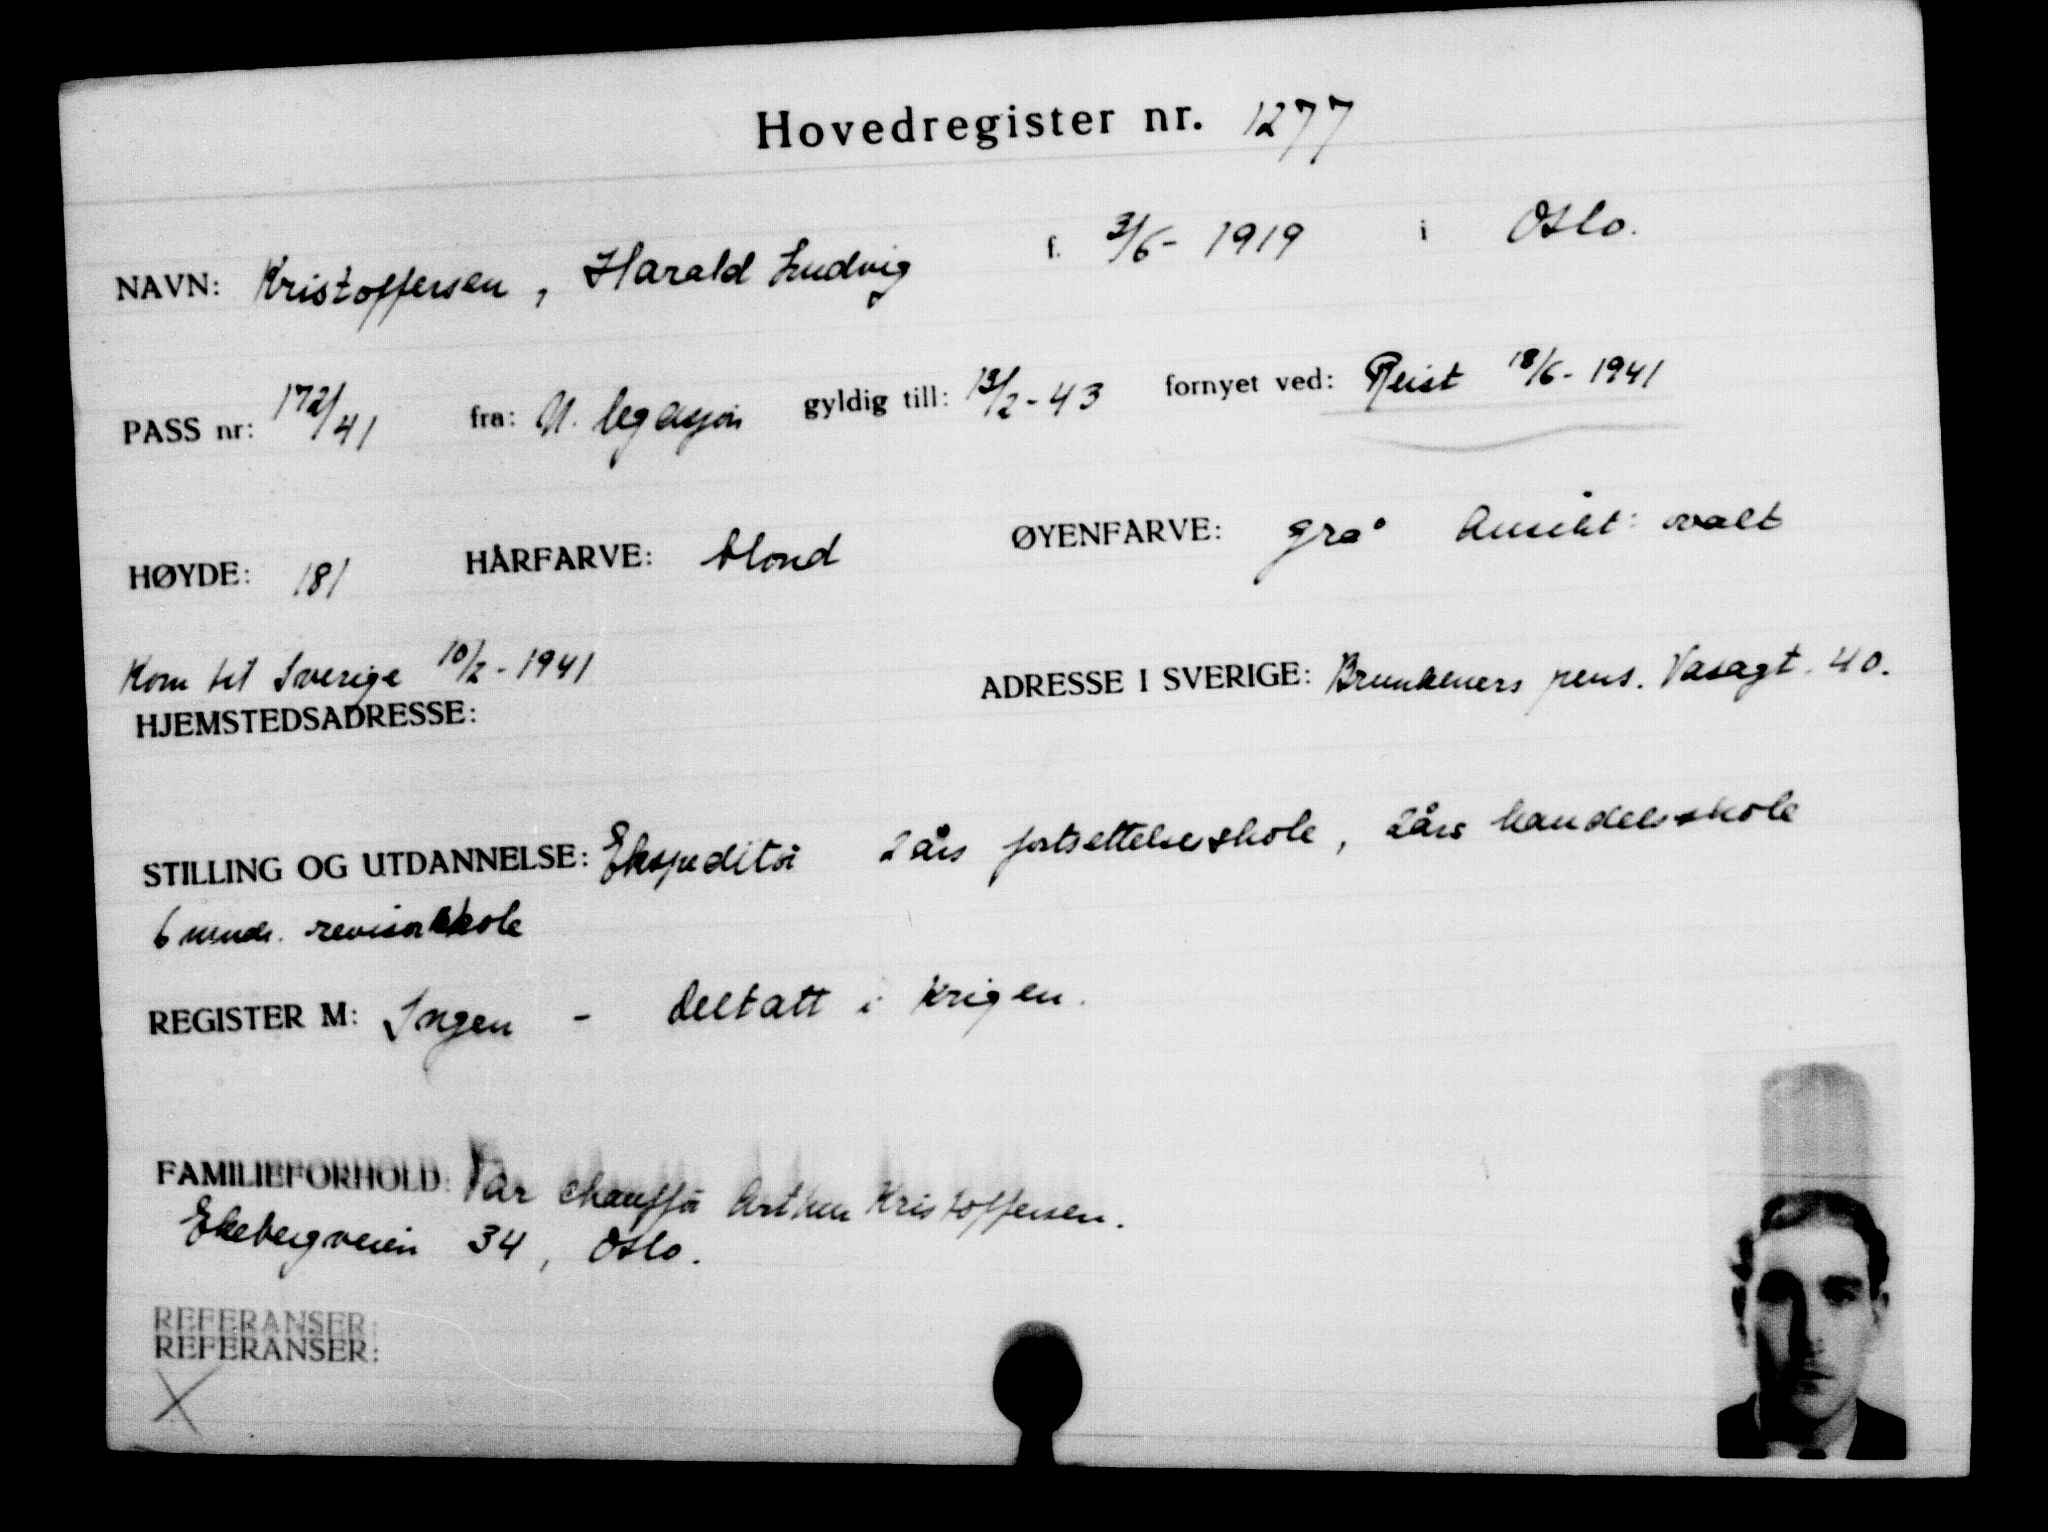 Hovedregister nr. 1277
NAVN: Kristoffersen, Harald Ludvig f. 3/6- 1919 i Oslo.
PASS nr: 172/41 fra: N. legasjon gyldig till: 13/2-43 fornyet ved: Reist 18/6-1941
HØYDE: 181 HÅRFARVE: blond ØYENFARVE: grå Ansikt: ovalt
Kom til Sverige 10/2-1941
HJEMSTEDSADRESSE: ADRESSE I SVERIGE: pens. Vasagt. 40.
STILLING OG UTDANNELSE: Ekspeditør 2 års fortsettelsesskole, 2års handelsskole
6 mndr. revisorskole
REGISTER M: Ingen - Deltatt i krigen.
FAMILIEFORHOLD: Far chauffør Arthur Kristoffersen.
Ekebergveien 34, Oslo.
REFERANSER:
REFERANSER:
X